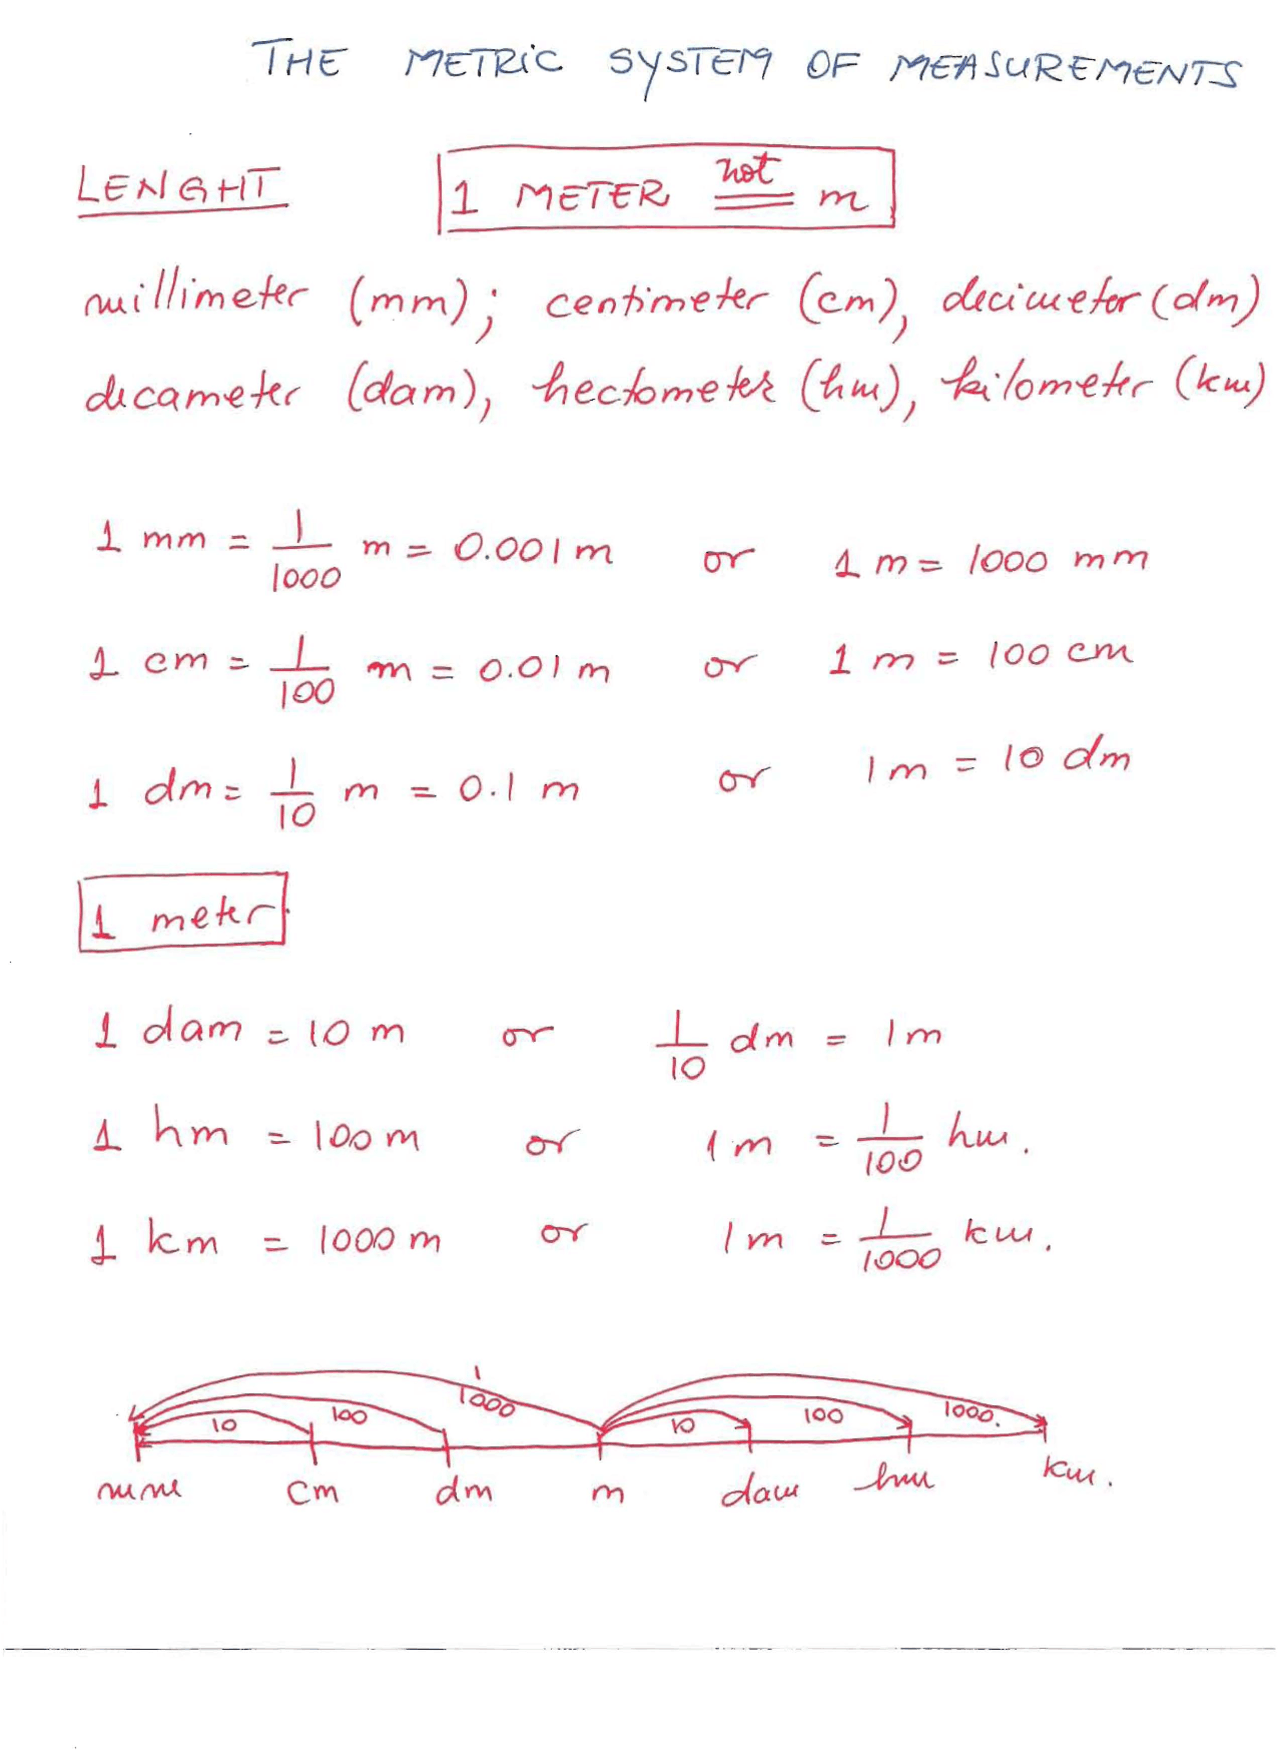 THE METRIC SYSTEM OF MEASUREMENTS
LENGHT 1 METER not = m
millimeter (mm); centimeter (cm), decimeter (dm)
decameter (dam), hectometer (hm), kilometer (km)
1 mm = 1/1000 m = 0.001 m or 1 m = 1000 mm
1 cm = 1/100 m = 0.01 m or 1 m = 100 cm
1 dm = 1/10 m = 0.1 m or 1 m = 10 dm
1 meter
1 dam = 10 m or 1/10 dm = 1 m
1 hm = 100 m or 1 m = 1/100 hm.
1 km = 1000 m or 1 m = 1/1000 km.
10 100 1000 10 100 1000.
mm cm dm m dam hm km.